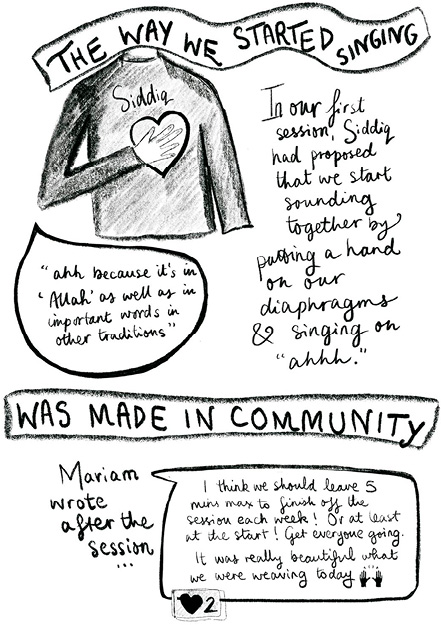 THE WAY WE STARTED SINGING
Siddiq
In our first
session, Siddiq
had proposed
that we start
sounding
together by
putting a hand
on our
diaphragms
& singing on
"ahhh."
"ahh because it's in
'Allah' as well as in
important words in
other traditions"
WAS MADE IN COMMUNITY
Mariam
wrote
after the
session
...
I think we should leave 5
mins max to finish off the
session each week! Or at least
at the start! Get everyone going.
It was really beautiful what
we were weaving today 🙌
♥2